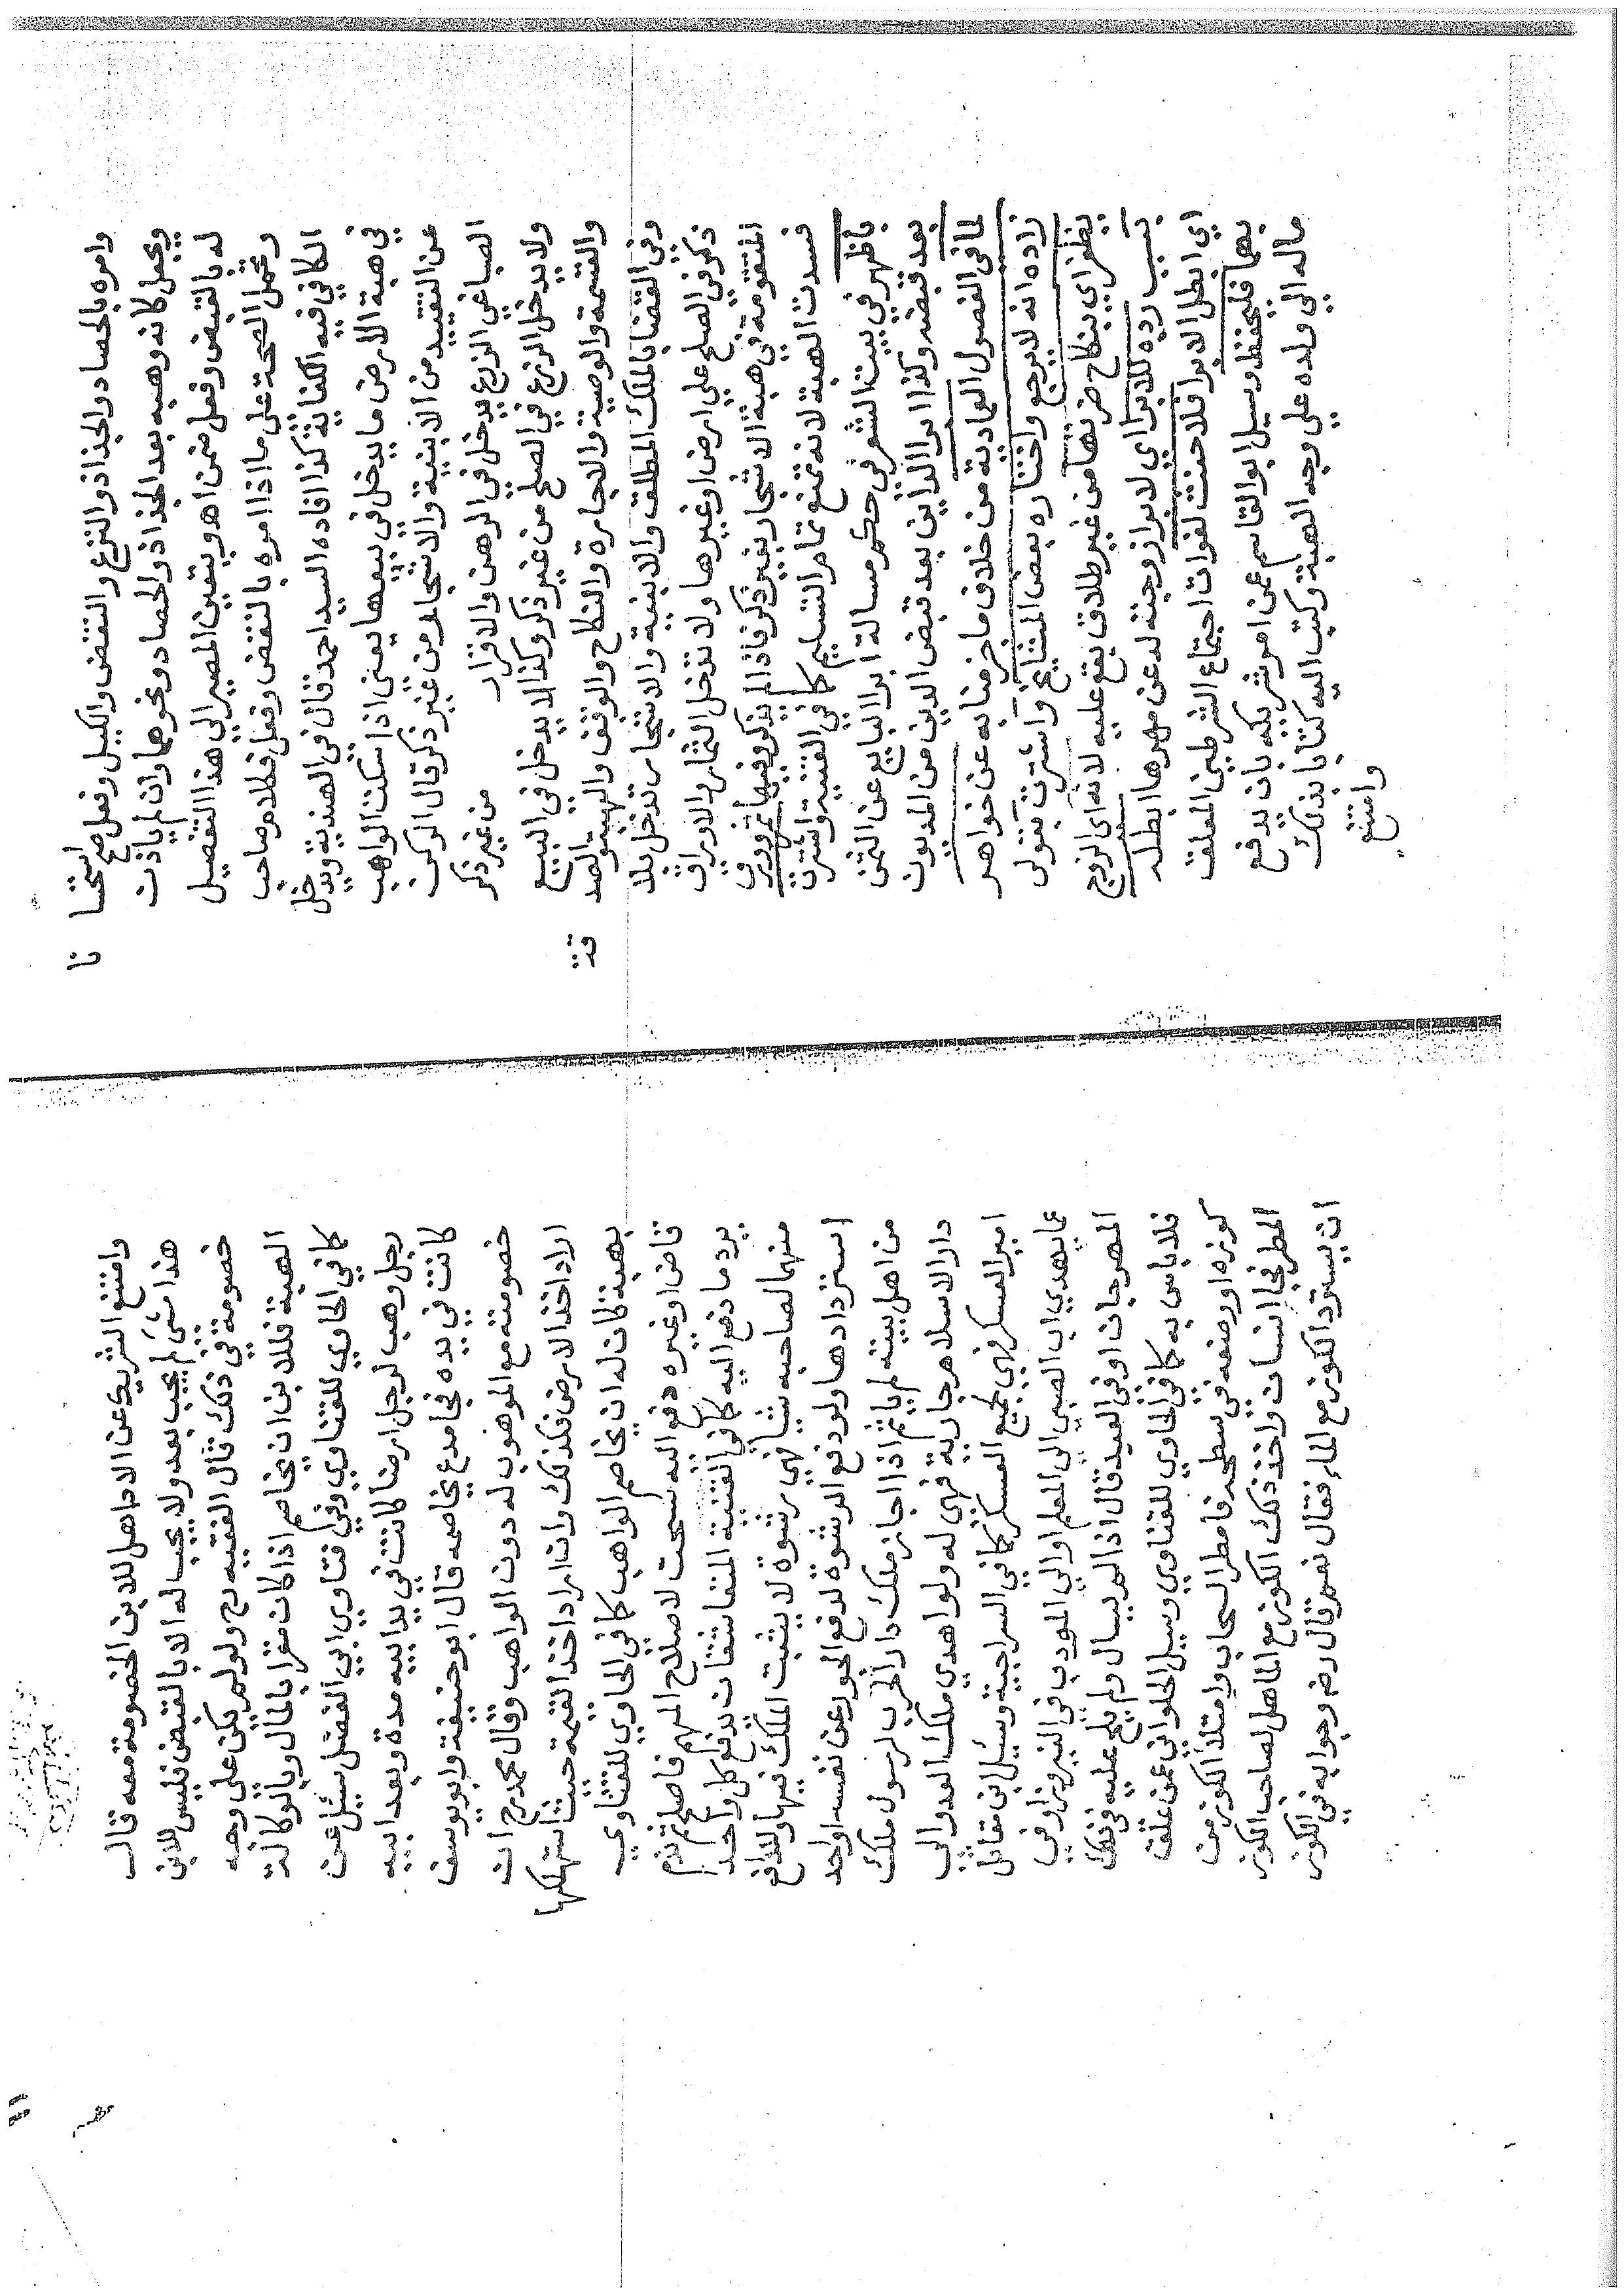 وامره بالحصاد والجذاذ والنزع والنقض والكيل وفعل صح استحسا
نا
ويجعل كانه وهبه بعد الجذاذ والحصاد ونحوهما وان لم ياذن
له بالقبض وفعل ضمن اهـ ويتعين المصير الي هذا التفصيل
وتحمل الصحة علي ما اذا امره بالنقض وفعل فكلام صاحب
الكافي فيه الكفاية كذا افاده السيد احمد قال في الهندية ويدخل
في هبة الارض ما يدخل في بيعها يعني اذا سكت الواهب
عن التقييد من الابنية والاشجار من غير ذكر قال الركن
الصباغي الزرع يدخل في الرهن والاقرار من غير ذكر
ولا يدخل الزرع في الصلح من غير ذكر وكذا لا يدخل في البيع
والقسمة والوصية والاجارة والنكاح والوقف والهبة والصد
قة
وفي القضا بالملك المطلق والابنية والاشجار تدخل بلا
ذكر في الصلح علي ارض او غيرها ولا تدخل الثمار والاوراق
المتقومة في هبة الاشجار بغير ذكر فاذا لم يذكر وفيها ثمر وورق
فسدت الهبة لانه تمنع تمام التسليم كما في القنية واشرت
باظهر في بيت الشعر في حكم مسالة ابرا البايع عن الثمن
بعد قبضه وكذا ابرا الداين بعد قبض الدين من المديون
لما في الفصول العمادية من خلاف ما جزمنا به عن خواهر
زاده انه لا يرجع واختاره بعض المشايخ واشرت بقولي
بظفر اي بنكاح ضرتها من غير طلاق يقع عليه لانه اي الزوج
بسبب رده للابرا اي لابرا زوجته له عن مهرها ابطله
اي ابطل الابرا فلا حنث لفوات اجتماع الشرطين المعلق
بهما فليحفظ وسيل ابو القاسم عن امر شريكه بان يدفع
ماله الي ولده علي وجه الهبة وكتب اليه كتابا بذلك
وامتنع
وامتنع الشريك عن الادا هل للابن الخصومة معه قال
هذا شيء لم يجب بعد ولا يجب له الا بالقبض فليس للابن
خصومة في ذلك قال الفقيه رح ولو لم يكن علي وجه
الهبة فللابن ان يخاصم اذا كان مقرا بالمال وبالوكالة
كما في الحاوي للفتاوي وفي فتاوي ابي الفضل سيل عن
رجل وهب لرجل ارضا كانت في يد ابيه مدة وبعد ابيه
كانت في يده فجا مدع يخاصمه قال ابو حنيفة وابو يوسف
خصومته مع الموهوب له دون الواهب وقال محمد رح ان
اراد اخذ الارض فكذلك وان اراد اخذ القيمة حيث استهلكها
بهبة كان له ان يخاصم الواهب كما في الحاوي للفتاوي
قاض او غيره دفع اليه سحت لاصلاح المهم فاصلح ثم ندم
يرد ما دفع اليه كما في القنية المتعاشقان يدفع كل واحد
منهما لصاحبه شيا فهي رشوة لا يثبت الملك فيها وللدافع
استردادها ولو دفع الرشوة لدفع الجور عن نفسه او احد
من اهل بيته لم ياثم اذا اجاز ملك دار الحرب لرسول ملك
دار الاسلام جارية فهي له ولو اهدي ملك العدو الي
امير العسكر فهي لجميع العسكر كما في السراجية وسيل ابن مقاتل
عما يهدي اب الصبي الي المعلم او الي المودب في النيروز او في
المهرجان او في العيد قال اذا لم يسال ولم يلح عليه في ذلك
فلا باس به كما في الحاوي للفتاوي وسيل الحلواني عمن علق
كوزه او وضعه في سطحه فامطر السحاب وامتلا الكوز من
المطر فجا انسان واخذ ذلك الكوز مع الما هل لصاحب الكوز
ان يسترد الكوز مع الماء فقال نعم قال رضـ وجوابه في الكوز